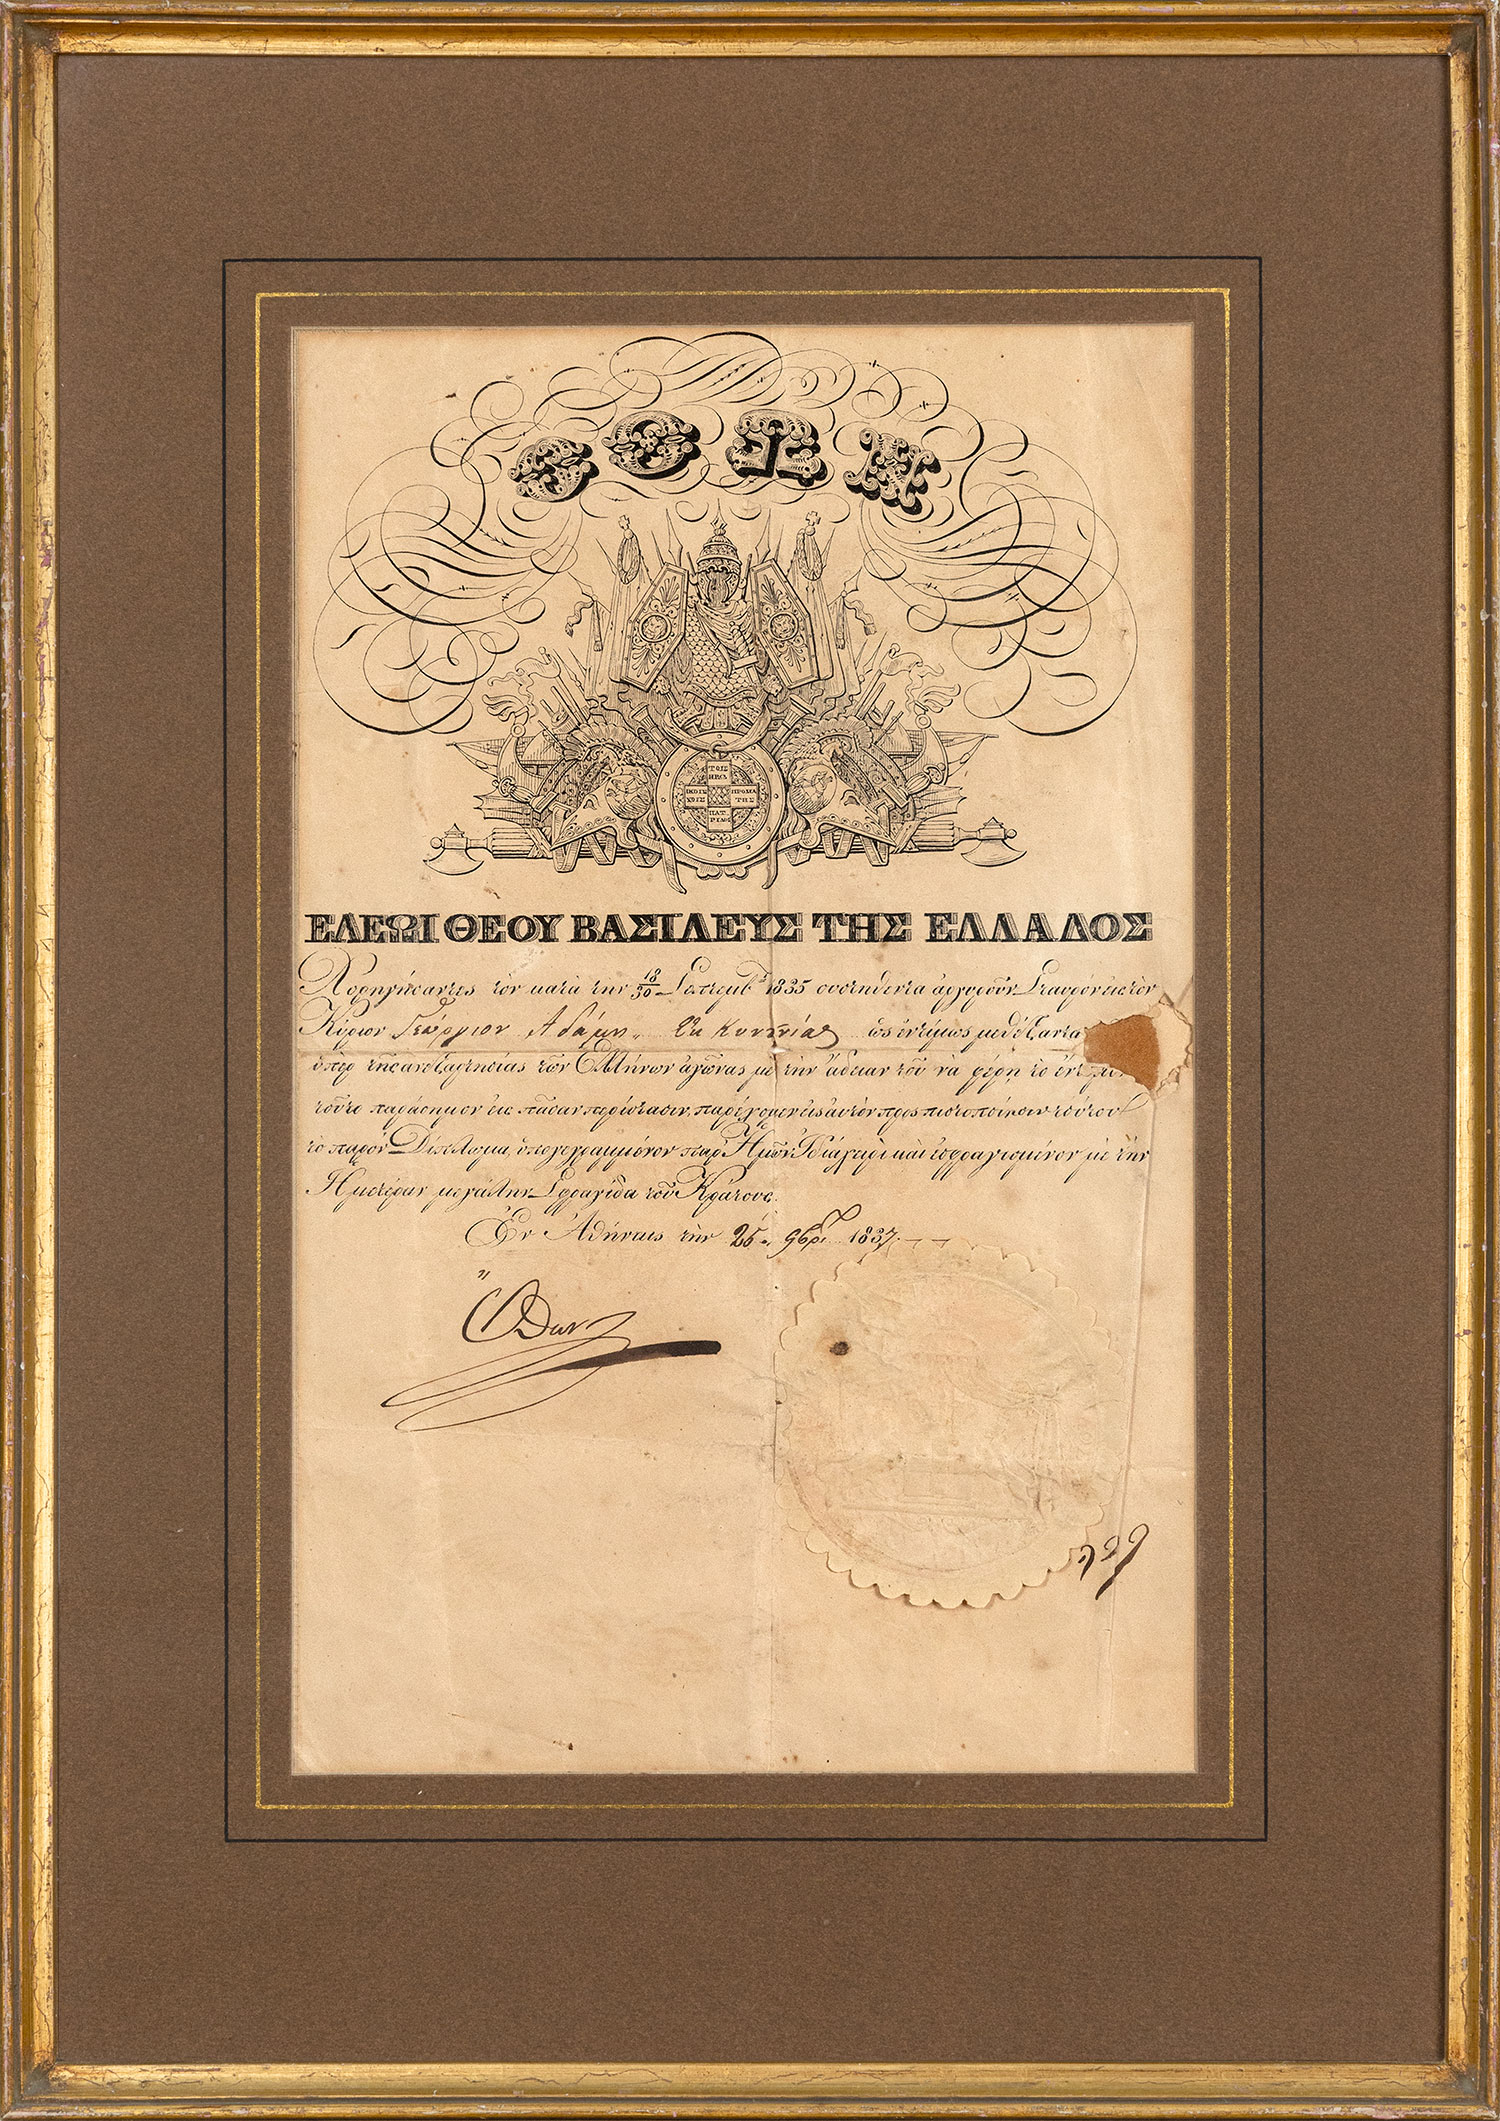 ΟΘΩΝ
ΤΟΙΣ
ΗΡΩΙ
ΚΟΙΣ ΠΡΟΜΑ
ΧΟΙΣ ΤΗΣ
ΠΑΤ
ΡΙΔΟΣ
ΕΛΕΩΙ ΘΕΟΥ ΒΑΣΙΛΕΥΣ ΤΗΣ ΕΛΛΑΔΟΣ
Χορηγήσαντες τὸν κατὰ τὴν 18/30 Σεπτεμβ. 1835 συστηθέντα ἀργυροῦν Σταυρὸν εἰς τὸν
Κύριον Γεώργιον Ἀδάμη ἐκ ὡς ἐντίμως μεθέξαντα
ὑπὲρ τῆς ἀνεξαρτησίας τῶν Ἑλλήνων ἀγῶνας μὲ τὴν ἄδειαν τοῦ νὰ φέρῃ τὸ
τοῦτο παράσημον εἰς πᾶσαν περίστασιν, παρέχομεν εἰς αὐτὸν πρὸς πιστοποίησιν τούτου
τὸ παρὸν Δίπλωμα, ὑπογεγραμμένον παρ' Ἡμῶν Ἰδιοχείρως καὶ ἐσφραγισμένον μὲ τὴν
Ἡμετέραν μεγάλην Σφραγίδα τοῦ Κράτους.
Ἐν Ἀθήναις τὴν 25 9βρ 1837.
Ὄθων
729